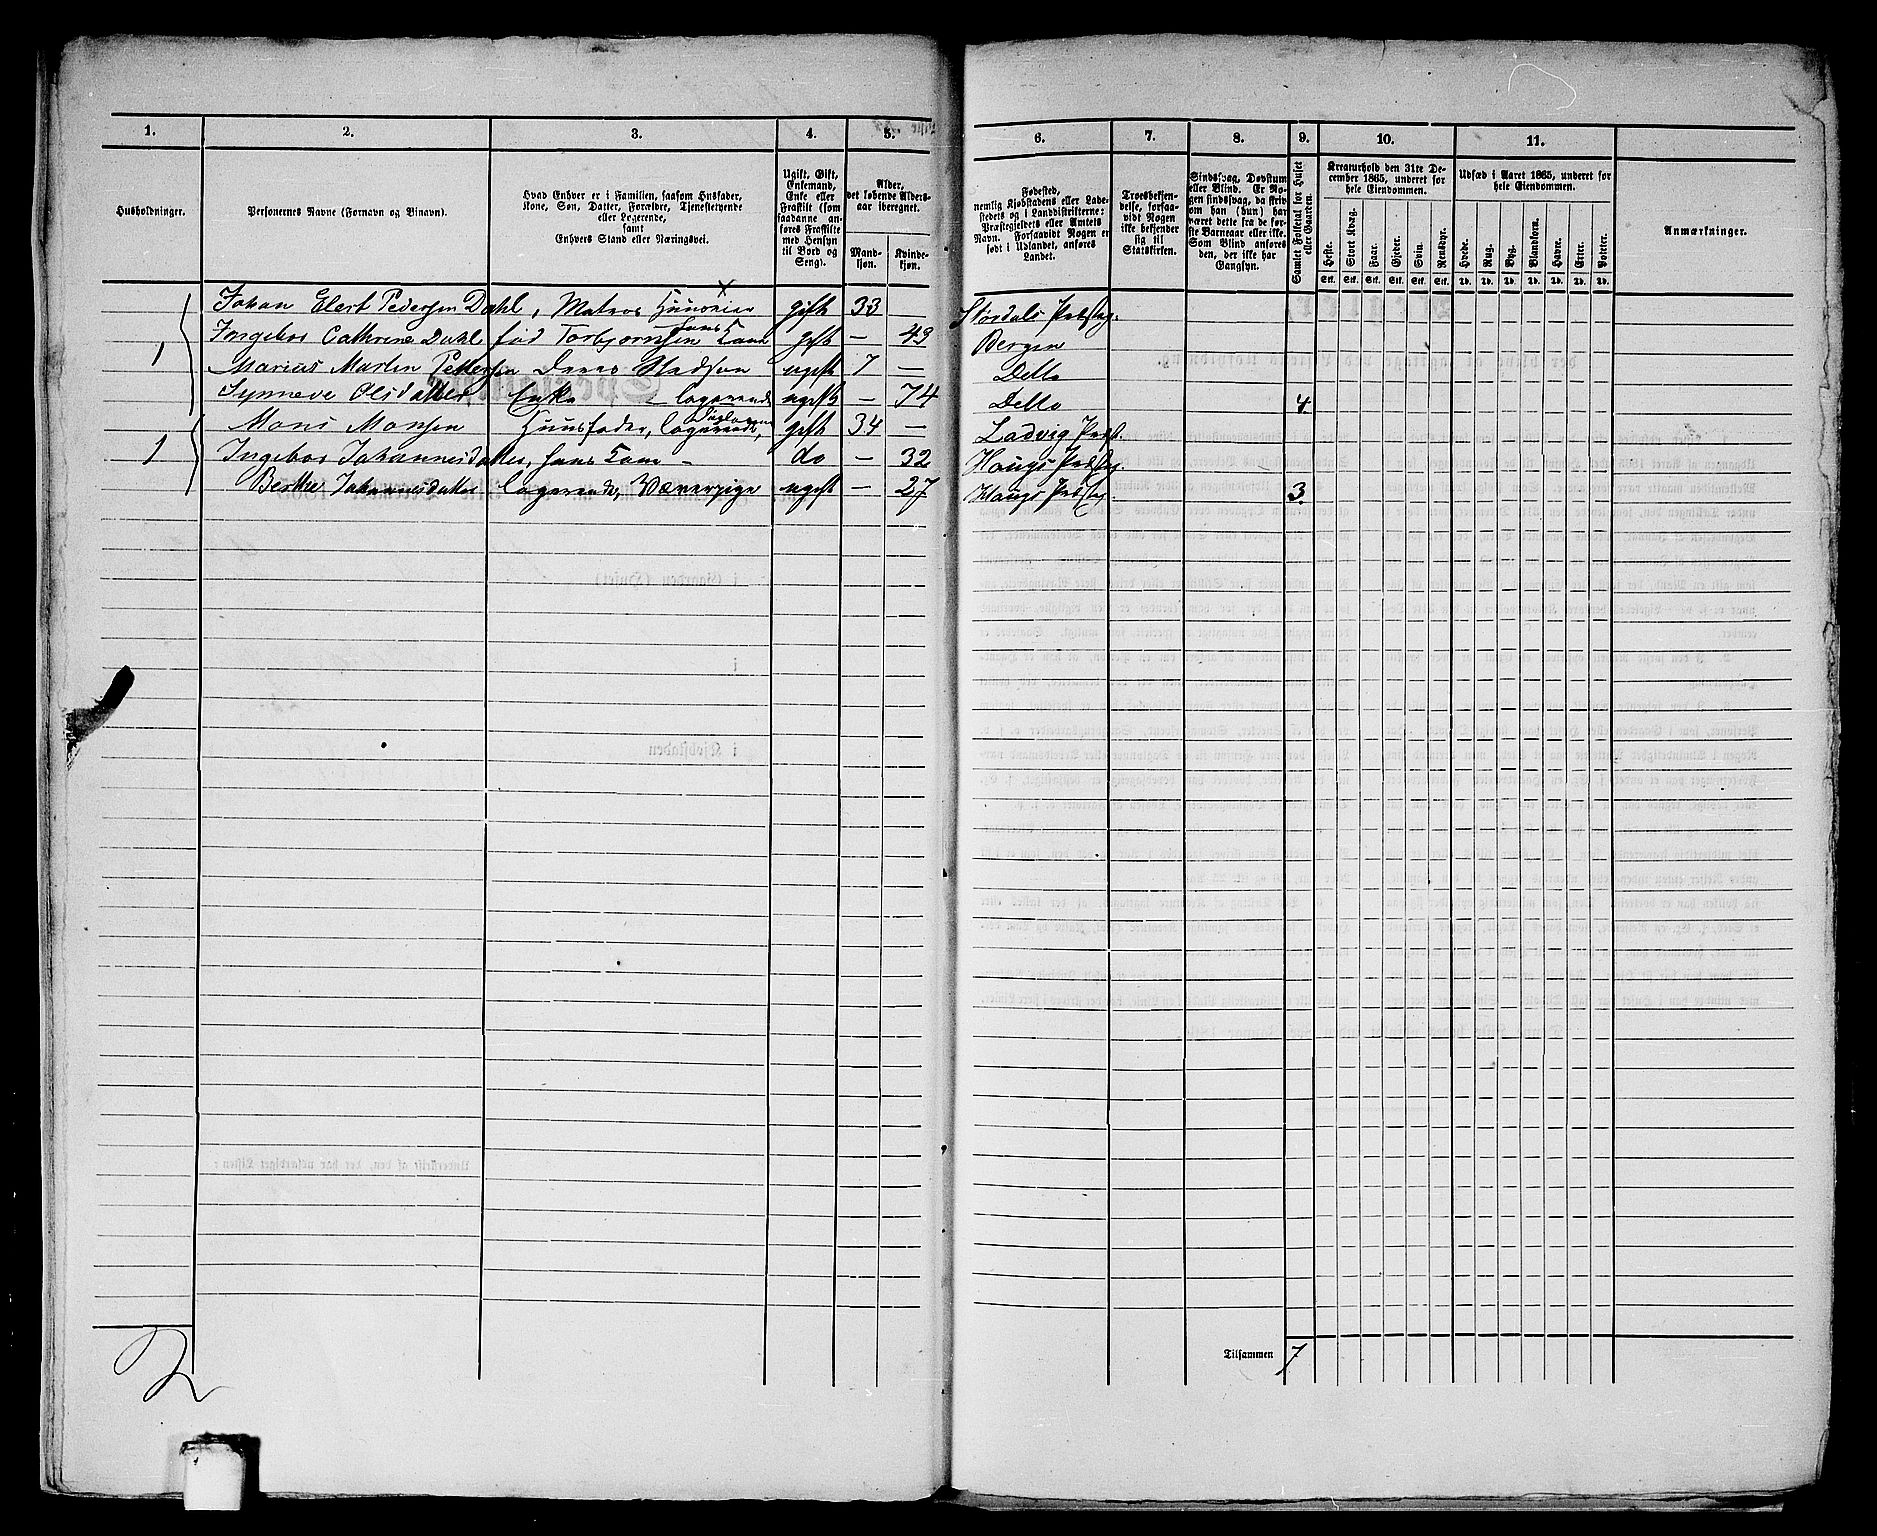 1. 2. 3. 4. 5. 6. 7. 8. 9. 10. 11.
Husholdninger.
Personernes Navne (Fornavn og Binavn).
Hvad Enhver er i Familien, saasom Husfader, Kone, Søn, Datter, Forældre, Tjenestetyende eller Logerende, samt Enhvers Stand eller Næringsvei.
Ugift, Gift, Enkemand, Enke eller Fraskilt (som saadanne anføres Fraskilte med Hensyn til Bord og Seng).
Alder, det løbende Aldersaar iberegnet.
Mandkjøn. Kvindekjøn.
Fødested, nemlig Kjøbstadens eller Ladestedets og i Landdistrikterne: Præstegjeldets eller Amtets Navn. Forsaavidt Nogen er født i Udlandet, anføres Landet.
Troesbekjendelse, forsaavidt Nogen ikke bekjender sig til Statskirken.
Sindssvag, Døvstum eller Blind. Er Nogen sindssvag, da skriv om han (hun) har været dette fra de første Barneaar eller ikke. Som Blind anføres den, der ikke har Gangsyn.
Samlet Folketal for Huset eller Gaarden.
Kreaturhold den 31te December 1865, underet for hele Eiendommen.
Heste. Stort Kvæg. Faar. Gjeder. Svin. Rensdyr.
Stk. Stk. Stk. Stk. Stk. Stk.
Udsæd i Aaret 1865, underet for hele Eiendommen.
Hvede. Rug. Byg. Blandkorn. Havre. Erter. Poteter.
Td. Td. Td. Td. Td. Td. Td.
Anmærkninger.
Johan Elert Pedersen Dahl, Matros Huuseier gift 33 Størdals Præsteg.
Ingebor Cathrine Dahl fød Torbjørnsen hans Kone gift — 43 Bergen
1 Marius Martin Pettersen Deres Stedsøn ugift 7 — Detto
Synneve Olsdatter Enke — logerende ugift — 74 Detto 4
Mons Monsen Huusfader, logerende, gift 34 — Ladvig Præst.
1 Ingebor Johannesdatter, hans Kone — do — 32 Hougs Præsteg.
Berthe Johannesdatter logerende, Væverpige ugift — 27 Hougs Præsteg. 3
2
Tilsammen 7